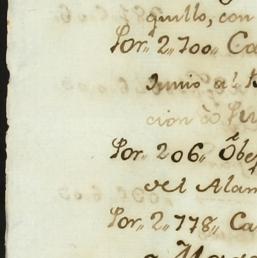 quillo, con
Por 2,,700,, Ca
Junio al
cion
Por 206,,
del Alam
Por 2,,778,, Ca
a